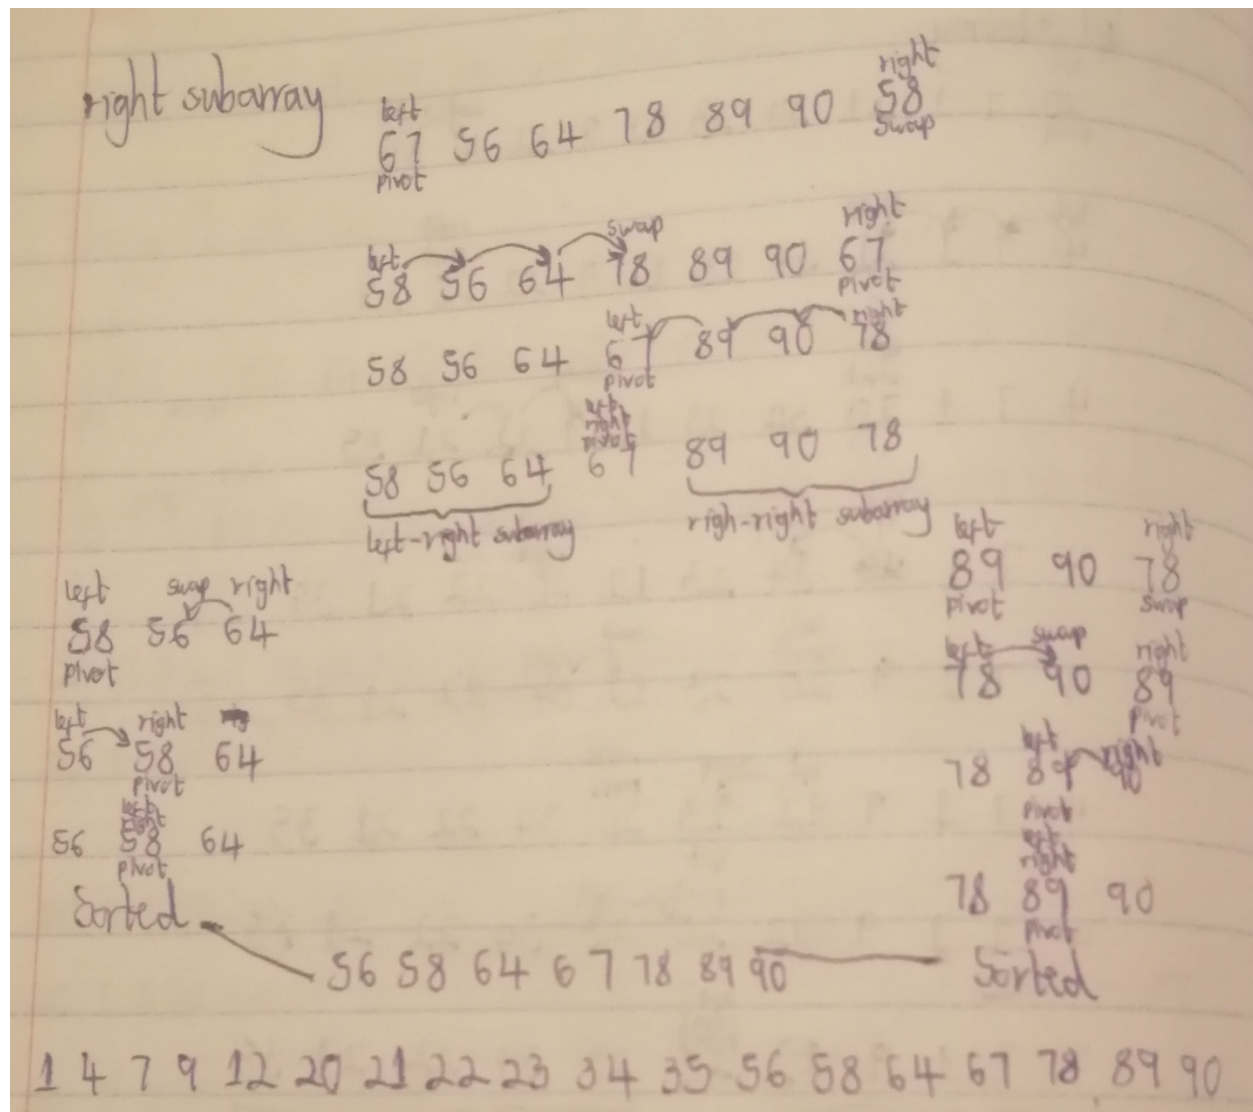 right
right subarray
left
67 56 64 78 89 90 58
pivot
swap
swap
right
left
58 56 64 78 89 90 67
pivot
left
right
58 56 64 67 89 90 78
pivot
left
right
pivot
58 56 64 67 89 90 78
left-right subarray
righ-right subarray
left swap right
58 56 64
pivot
left right
56 58 64
pivot
left
right
56 58 64
pivot
Sorted
left right
89 90 78
pivot swap
left swap right
78 90 89
pivot
left right
78 89 90
pivot
left
right
78 89 90
pivot
Sorted
56 58 64 67 78 89 90
1 4 7 9 12 20 21 22 23 34 35 56 58 64 67 78 89 90